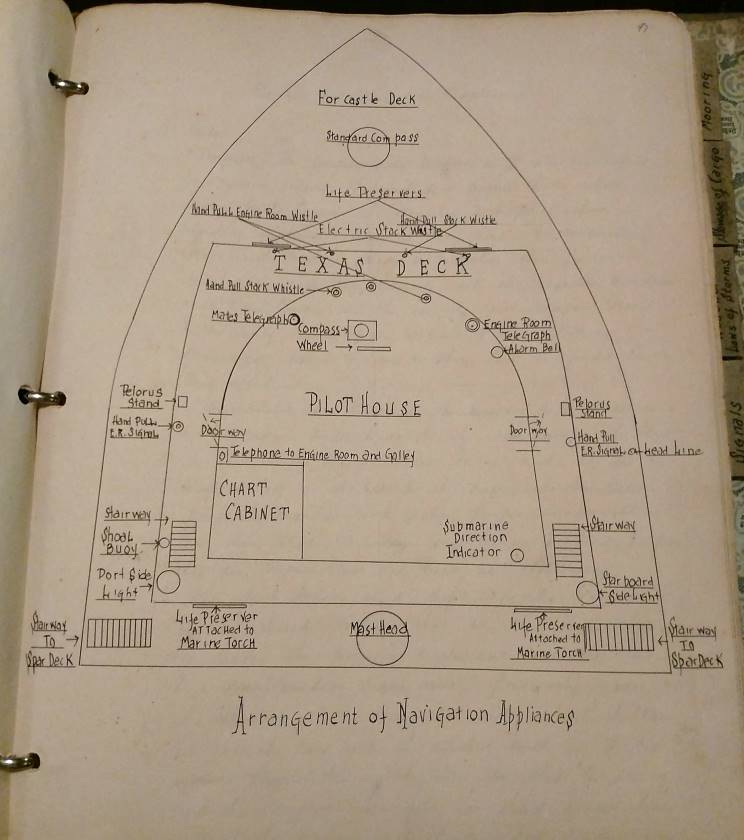 For castle Deck
Standard Compass
Life Preservers
Hand Pull Engine Room Wistle
Hand Pull Stack Wistle
Electric Stack Wistle
TEXAS DECK
Hand Pull Stack Whistle
Mates Telegraph
Compass
Wheel
Engine Room
TeleGraph
Alarm Bell
PILOT HOUSE
Pelorus
Stand
Hand Pull
E.R. Signal
Door way
Door way
Pelorus
Stand
Hand Pull
E.R. Signal or head Line
Telephone to Engine Room and Galley
CHART
CABINET
Submarine
Direction
Indicator
Stairway
Shoal
Buoy
Port Side
Light
Stairway
Starboard
Side Light
Stairway
To
Spar Deck
Life Preserver
ATTached to
Marine Torch
Mast Head
Life Preserver
Attached to
Marine Torch
Stairway
To
Spar Deck
Arrangement of Navigation Appliances
Mooring
of Cargo
Laws of Storms
Signals